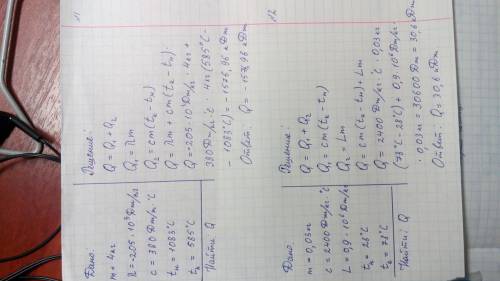 №1
Дано:
m = 4 кг
λ = -205 · 10³ Дж/кг
c = 380 Дж/кг °C
tн = 1083°C
tк = 585°C
Найти Q
Решение:
Q = Q₁ + Q₂
Q₁ = λm
Q₂ = cm(tк - tн)
Q = λm + cm(tк - tн)
Q = -205 · 10³ Дж/кг · 4 кг +
380 Дж/кг °C · 4 кг (585°C -
- 1083°C) = - 1576,96 кДж
Ответ: Q = - 1576,96 кДж
№2
Дано
m = 0,03 кг
c = 2400 Дж/кг °C
L = 0,9 · 10⁶ Дж/кг
tн = 28°C
tк = 78°C
Найти: Q
Решение:
Q = Q₁ + Q₂
Q₁ = cm(tк - tн)
Q₂ = Lm
Q = cm(tк - tн) + Lm
Q = 2400 Дж/кг °C · 0,03 кг ·
(78°C - 28°C) + 0,9 · 10⁶ Дж/кг ·
· 0,03 кг = 30600 Дж = 30,6 кДж
Ответ: Q = 30,6 кДж